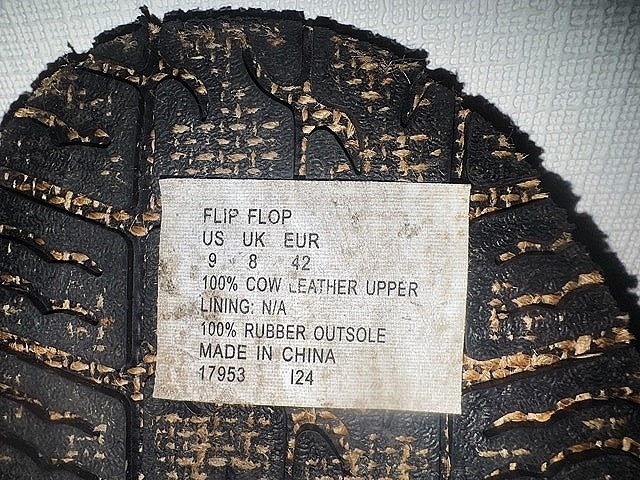 FLIP FLOP
US UK EUR
9 8 42
100% COW LEATHER UPPER
LINING: N/A
100% RUBBER OUTSOLE
MADE IN CHINA
17953 I24